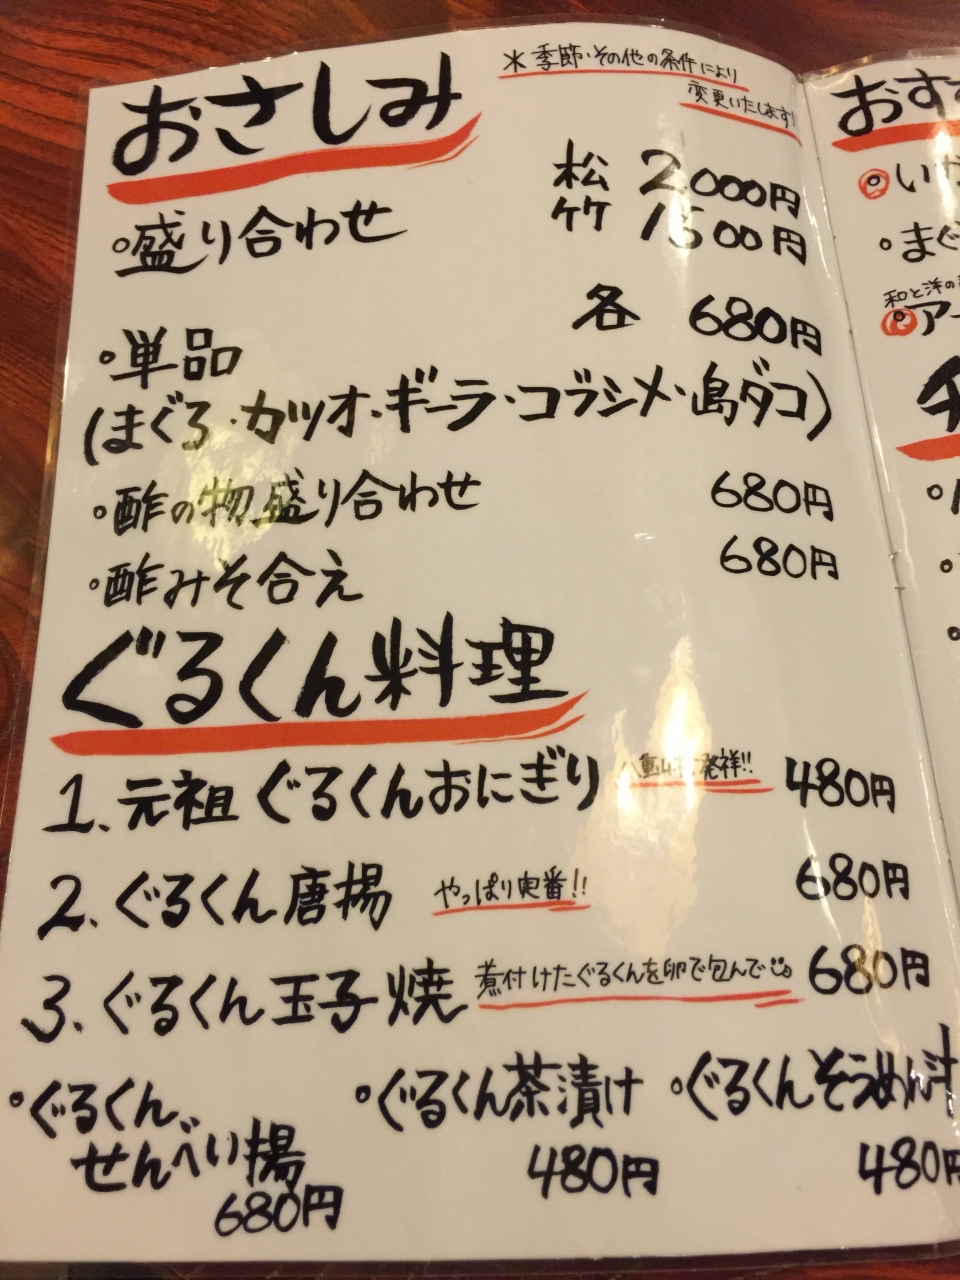 おさしみ
＊季節・その他の条件により
変更いたします!
・盛り合わせ
松 2,000円
竹 1500円
・単品
各 680円
(まぐろ・カツオ・ギーラ・コブシメ・島ダコ)
・酢の物盛り合わせ 680円
・酢みそ合え 680円
ぐるくん料理
1. 元祖ぐるくんおにぎり 発祥!! 480円
2. ぐるくん唐揚 やっぱり定番!! 680円
3. ぐるくん玉子焼 煮付けたぐるくんを卵で包んで 680円
・ぐるくん
せんべい揚
680円
・ぐるくん茶漬け
480円
・ぐるくんそうめん汁
480円
おす
・いか
・まぐ
和と洋の
・アー